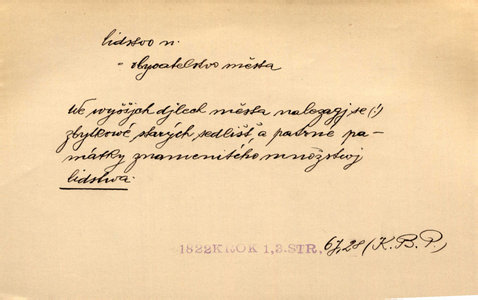 lidstvo n.
= obyvatelstvo města
We wyšjch djlech města nalegagj se (!)
zbytkowé starých sedlišť, a patrné pa-
mátky znamenitého množstwj
lidstwa.
1822 KROK 1, 3. STR, 67, 28 (K. B. P.)